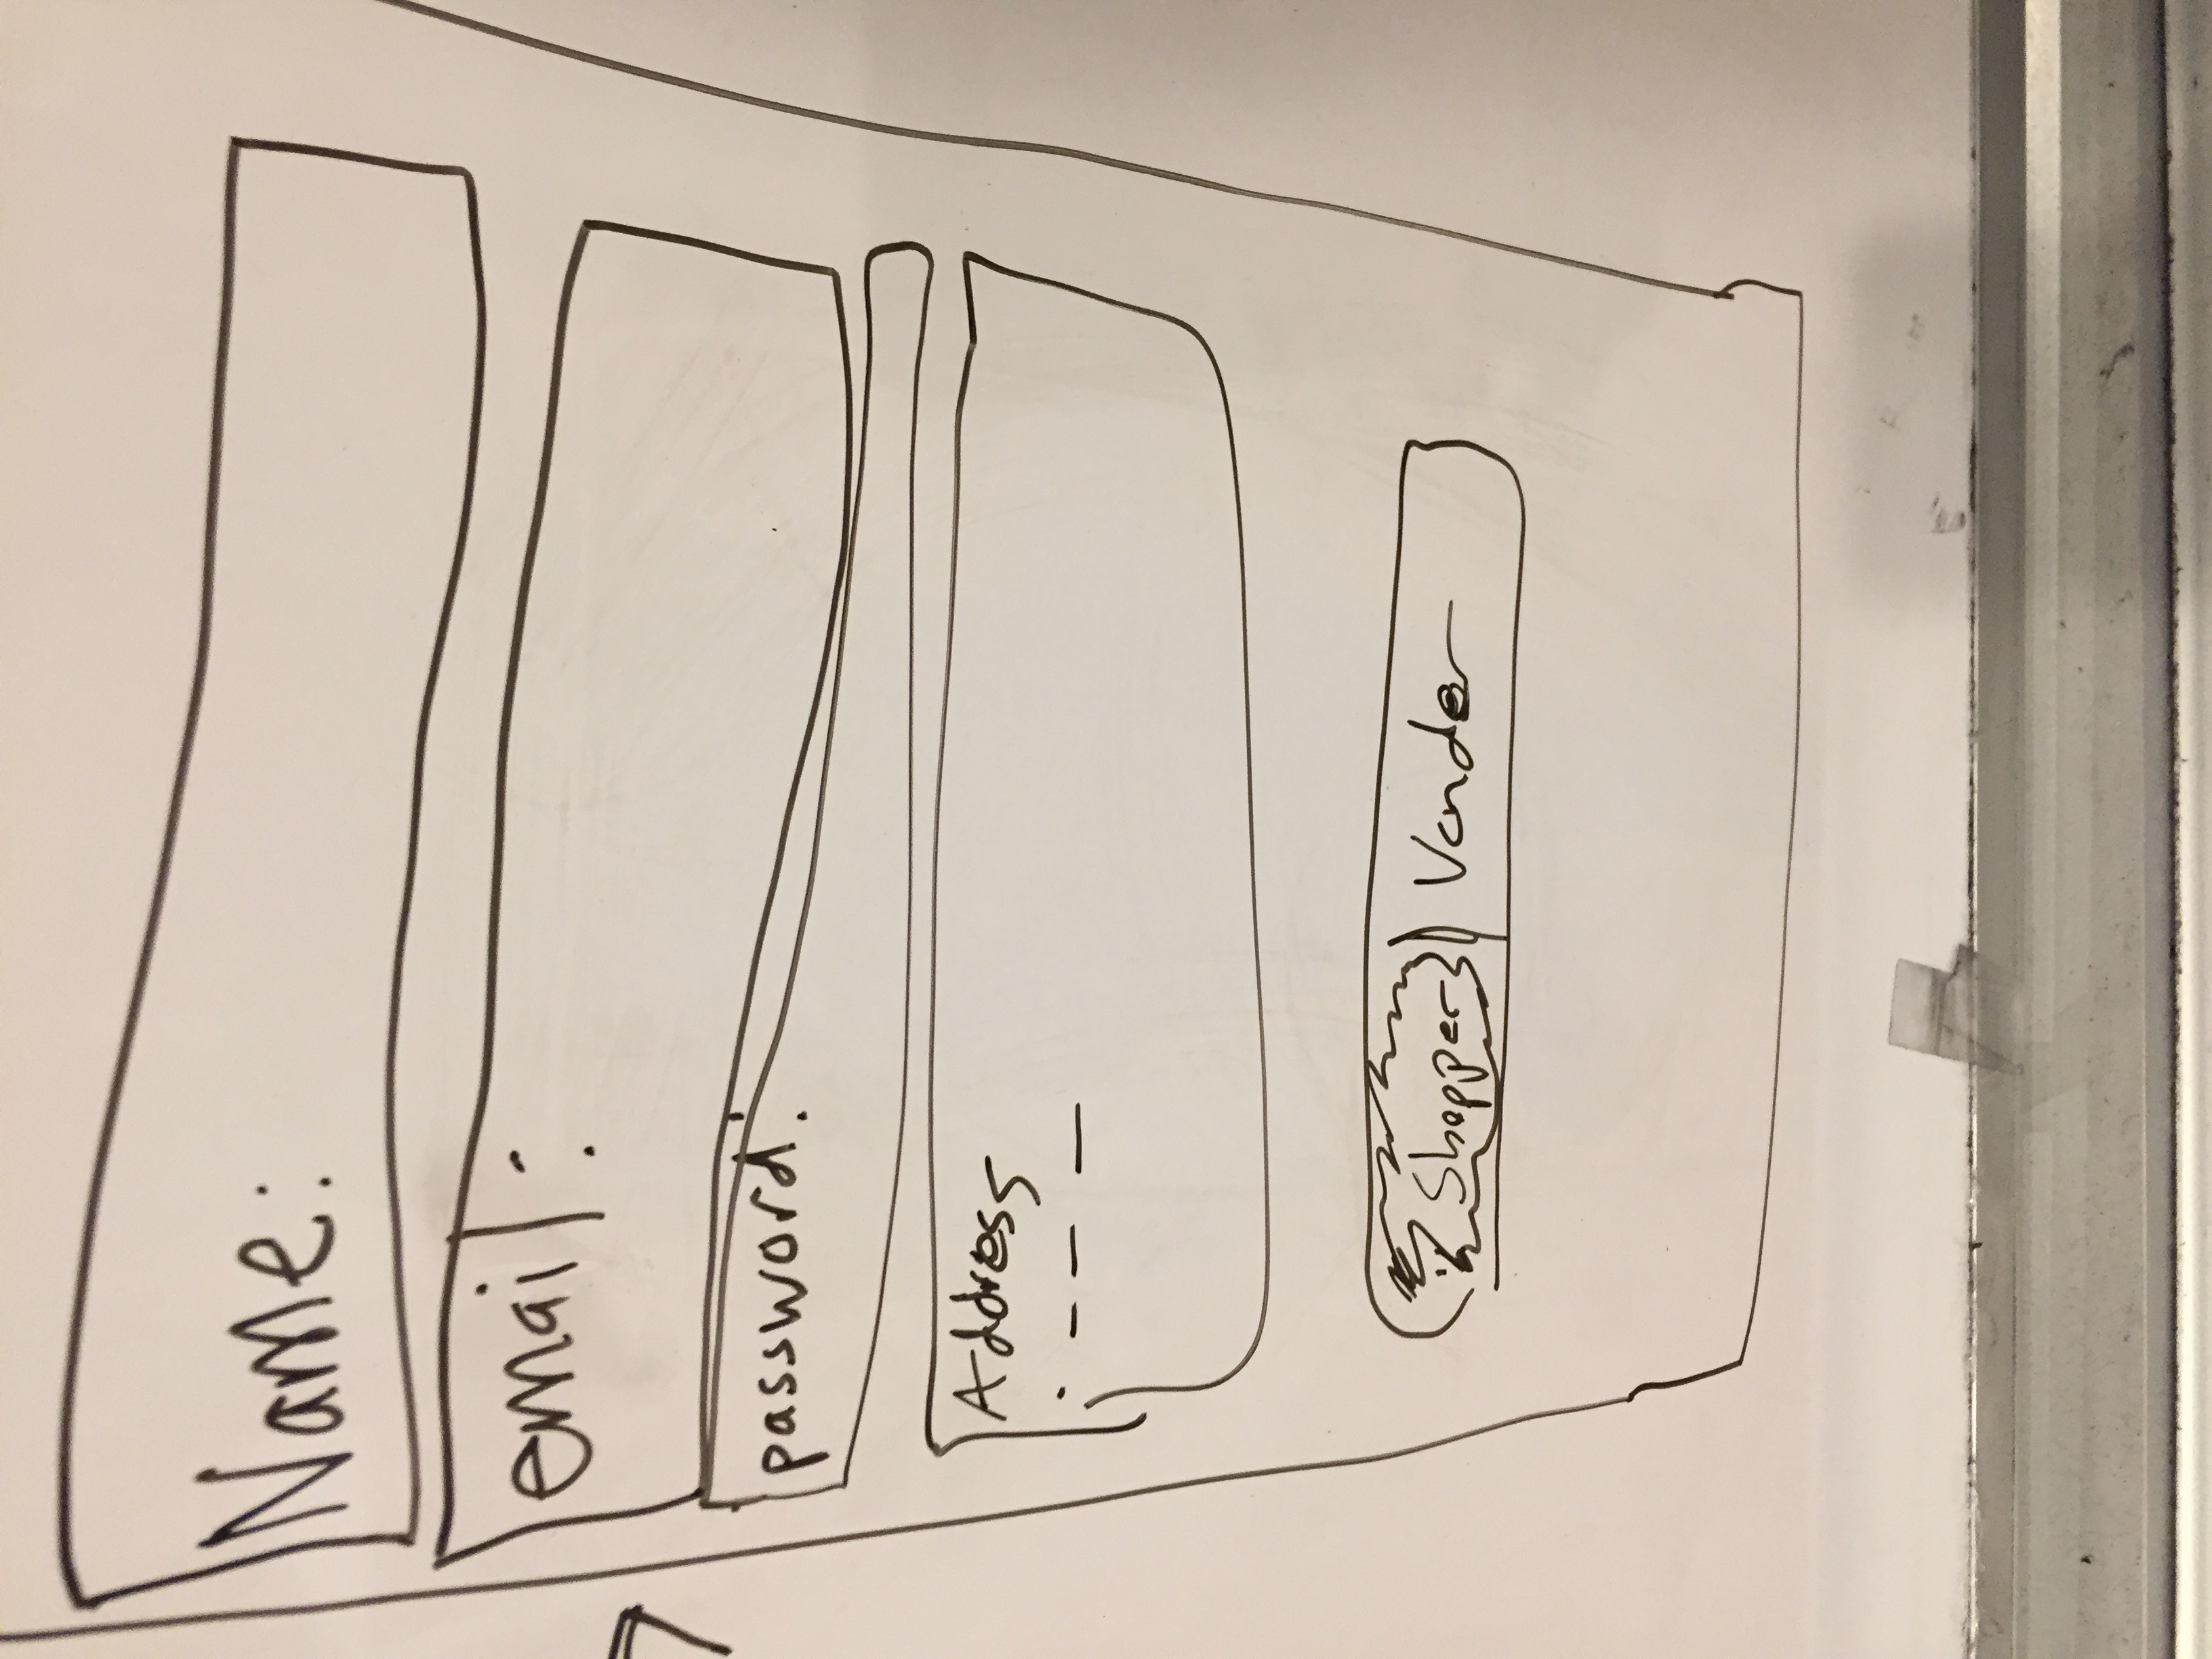 Name:
email:
password:
Address
Shopper Vender